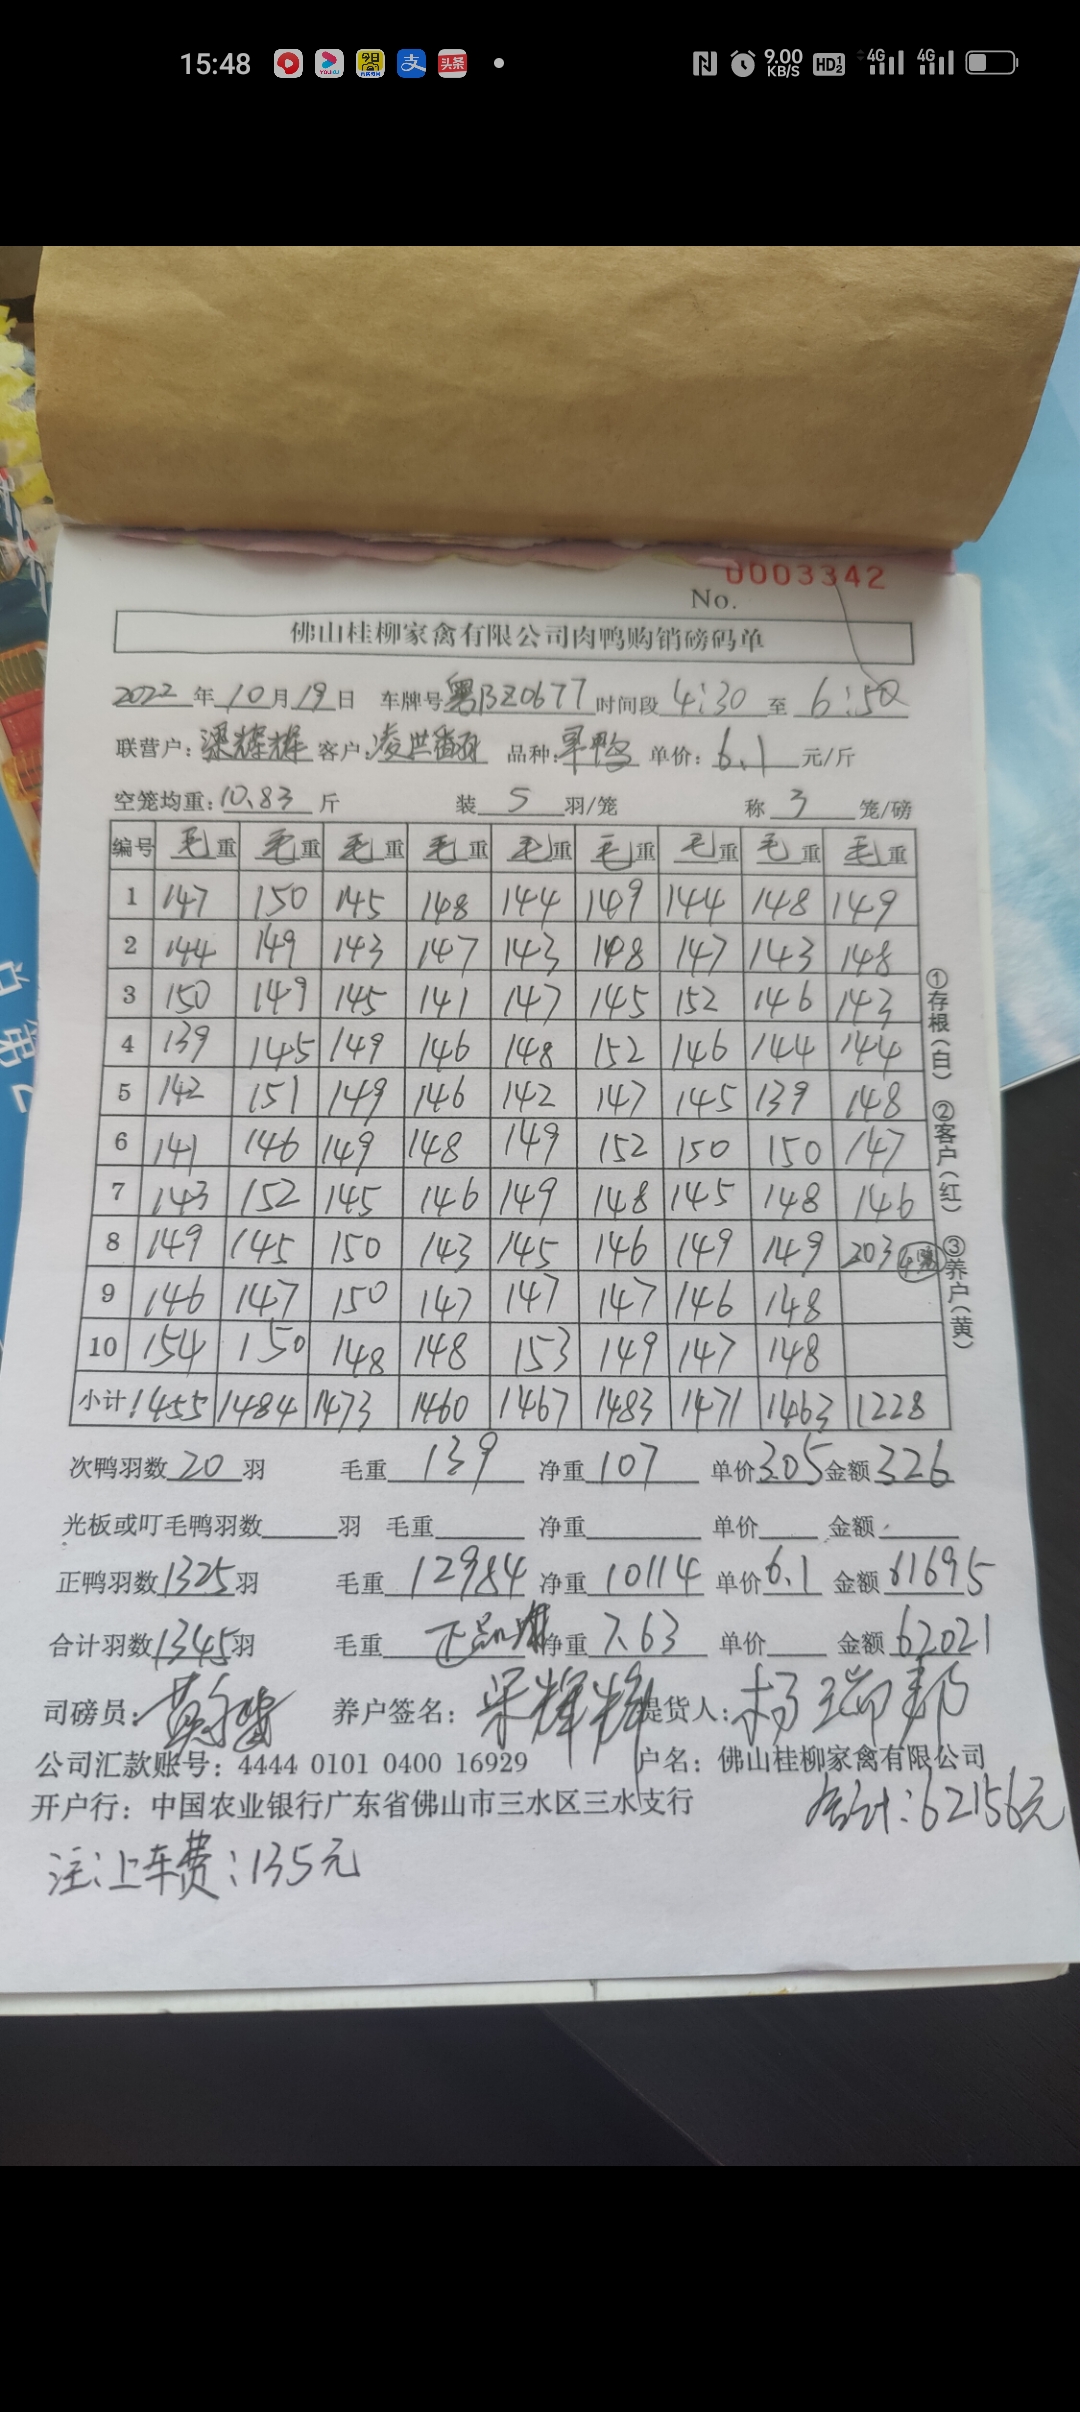 15:48 YOUKU 头条 9.00 KB/S HD 4G 4G
0003342
No.
佛山桂柳家禽有限公司肉鸭购销磅码单
2022年10月19日 车牌号粤BZ0677时间段4:30至6:50
联营户:梁辉辉 客户: 品种: 单价:6.1元/斤
空笼均重:10.83斤 装5羽/笼 称3笼/磅
编号 毛重 毛重 毛重 毛重 毛重 毛重 毛重 毛重 毛重
1 147 150 145 148 144 149 144 148 149
2 144 149 143 147 143 148 147 143 148
3 150 149 145 141 147 145 152 146 143
4 139 145 149 146 148 152 146 144 144
5 142 151 149 146 142 147 145 139 148
6 141 146 149 148 149 152 150 150 147
7 143 152 145 146 149 148 145 148 146
8 149 145 150 143 145 146 149 149 203
9 146 147 150 147 147 147 146 148
10 154 150 148 148 153 149 147 148
小计 1455 1484 1473 1460 1467 1483 1471 1463 1228
①存根(白) ②客户(红) ③养户(黄)
次鸭羽数20羽 毛重139 净重107 单价3.05金额326
光板或叮毛鸭羽数 羽 毛重 净重 单价 金额
正鸭羽数1325羽 毛重12984 净重10114 单价6.1 金额61695
合计羽数1345羽 毛重 净重7.63 单价 金额62021
司磅员: 养户签名:梁辉辉 提货人:杨瑞邦
公司汇款账号:4444 0101 0400 16929 户名:佛山桂柳家禽有限公司
开户行:中国农业银行广东省佛山市三水区三水支行 合计:62156元
注:上车费:135元